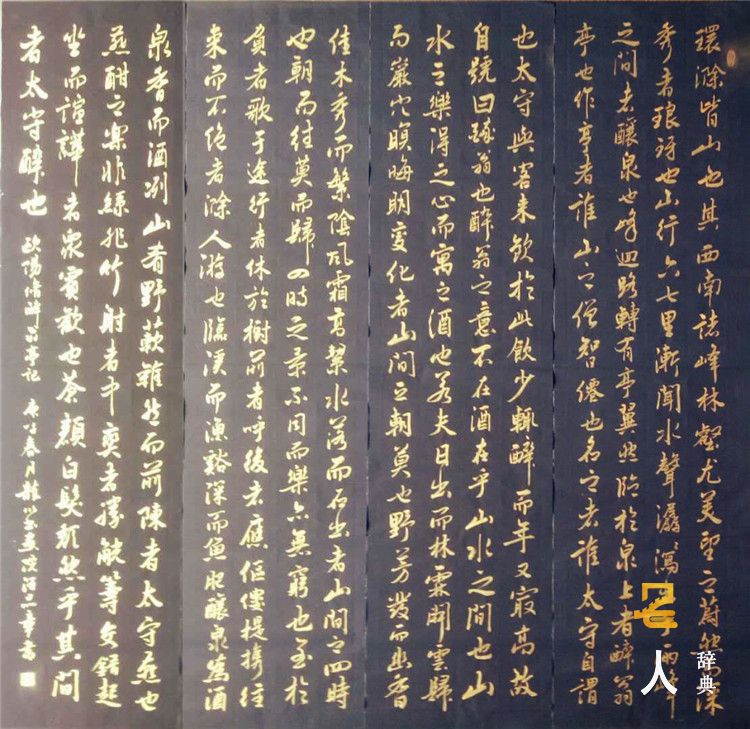 環滁皆山也其西南諸峰林壑尤美望之蔚然而深
秀者琅琊也山行六七里漸聞水聲潺潺瀉出于兩峰
之間者釀泉也峰迴路轉有亭翼然臨於泉上者醉翁
亭也作亭者誰山之僧智僊也名之者誰太守自謂
也太守與客來飲於此飲少輒醉而年又寂高故
自號曰醉翁也醉翁之意不在酒在乎山水之間也山
水之樂得之心而寓之酒也若夫日出而林霏開雲歸
而巖穴暝晦明變化者山間之朝莫也野芳發而幽香
佳木秀而繁陰風霜高潔水落而石出者山間之四時
也朝而往莫而歸四時之景不同而樂亦無窮也至於
負者歌于途行者休於樹前者呼後者應傴僂提攜往
來而不絕者滁人游也臨溪而漁谿深而魚肥釀泉為酒
泉香而酒冽山肴野蔌雜然而前陳者太守燕也
燕酣之樂非絲非竹射者中奕者勝觥籌交錯起
坐而諠譁者眾賓歡也蒼顏白髮頹然乎其間
者太守醉也 歐陽脩醉翁亭記 春月 書
名人
辞典